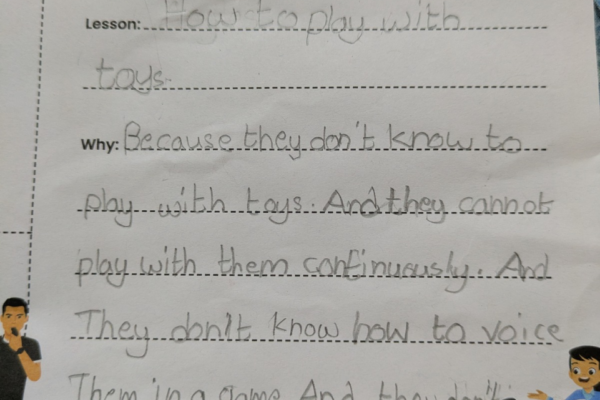 Lesson: How to play with
toys.
Why: Because they don't know to
play with toys. And they cannot
play with them continuously. And
They don't know how to voice
Them in a game And they don't